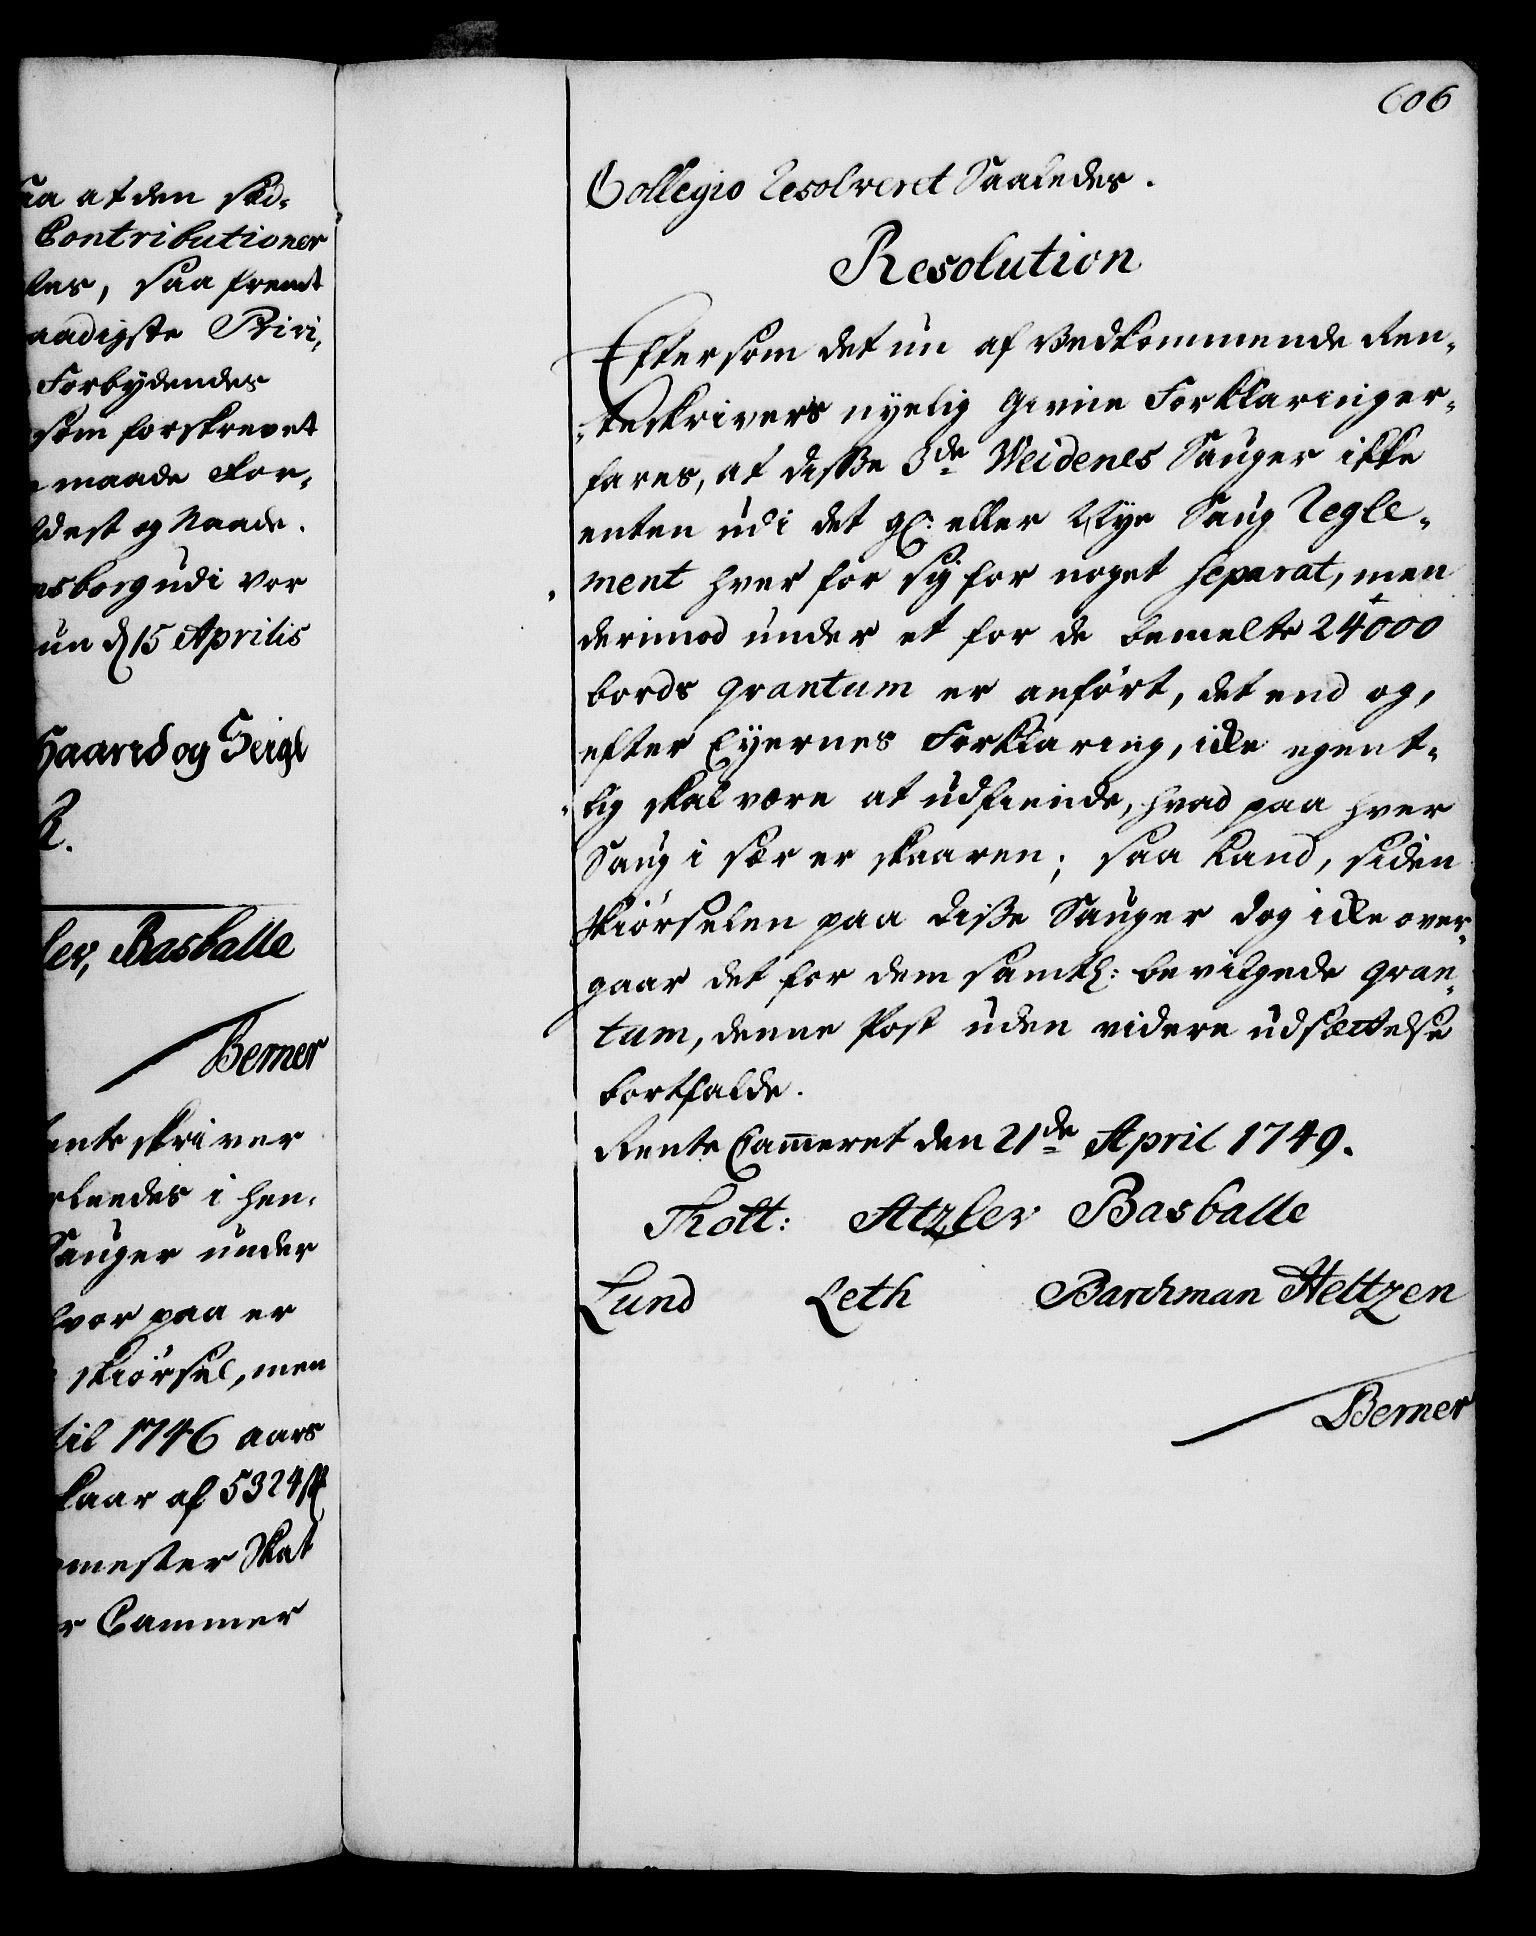 606
aa at den skd-
Contributioner
les, saa fremt
aadigste Privi,
Forbydendes
som forskrevet
maade For-
ldest og Naade.
nsborg udi vor
un d 15 Aprilis
Haand og Seigl
R.
ler, Basballe
Berner
ente skriver
rleedes i hen-
Sauger under
hvor paa er
skiørsel, men
til 1746 aars
kaar af 5324
mester Skat
r Cammer
Collegio Resolveret Saaledes.
Resolution
Eftersom det nu af Vedkommende Ren-
-teskrivers nyelig givne Forklaringer-
fares, at disse 3de Weidenes Sauger ikke
enten udi det gl: eller Nye Saug Regle-
ment hver for sig for noget separat, men
derimod under et for de bemelte 24000
bords qvantum er anført, det end og,
efter Eyernes Forklaring, ikke egent-
-lig skal være at udfinde, hvad paa hver
Saug i sær er skaaren; saa kand, siden
skiørselen paa disse Sauger dog ikke over-
gaar det for dem samtl: bevilgede qvan-
tum, denne Post uden videre udsættelse
bortfalde.
Rente Cammeret den 21de April 1749.
Thott: Atzler Basballe
Lund Leth Barchman Heltzen
Berner